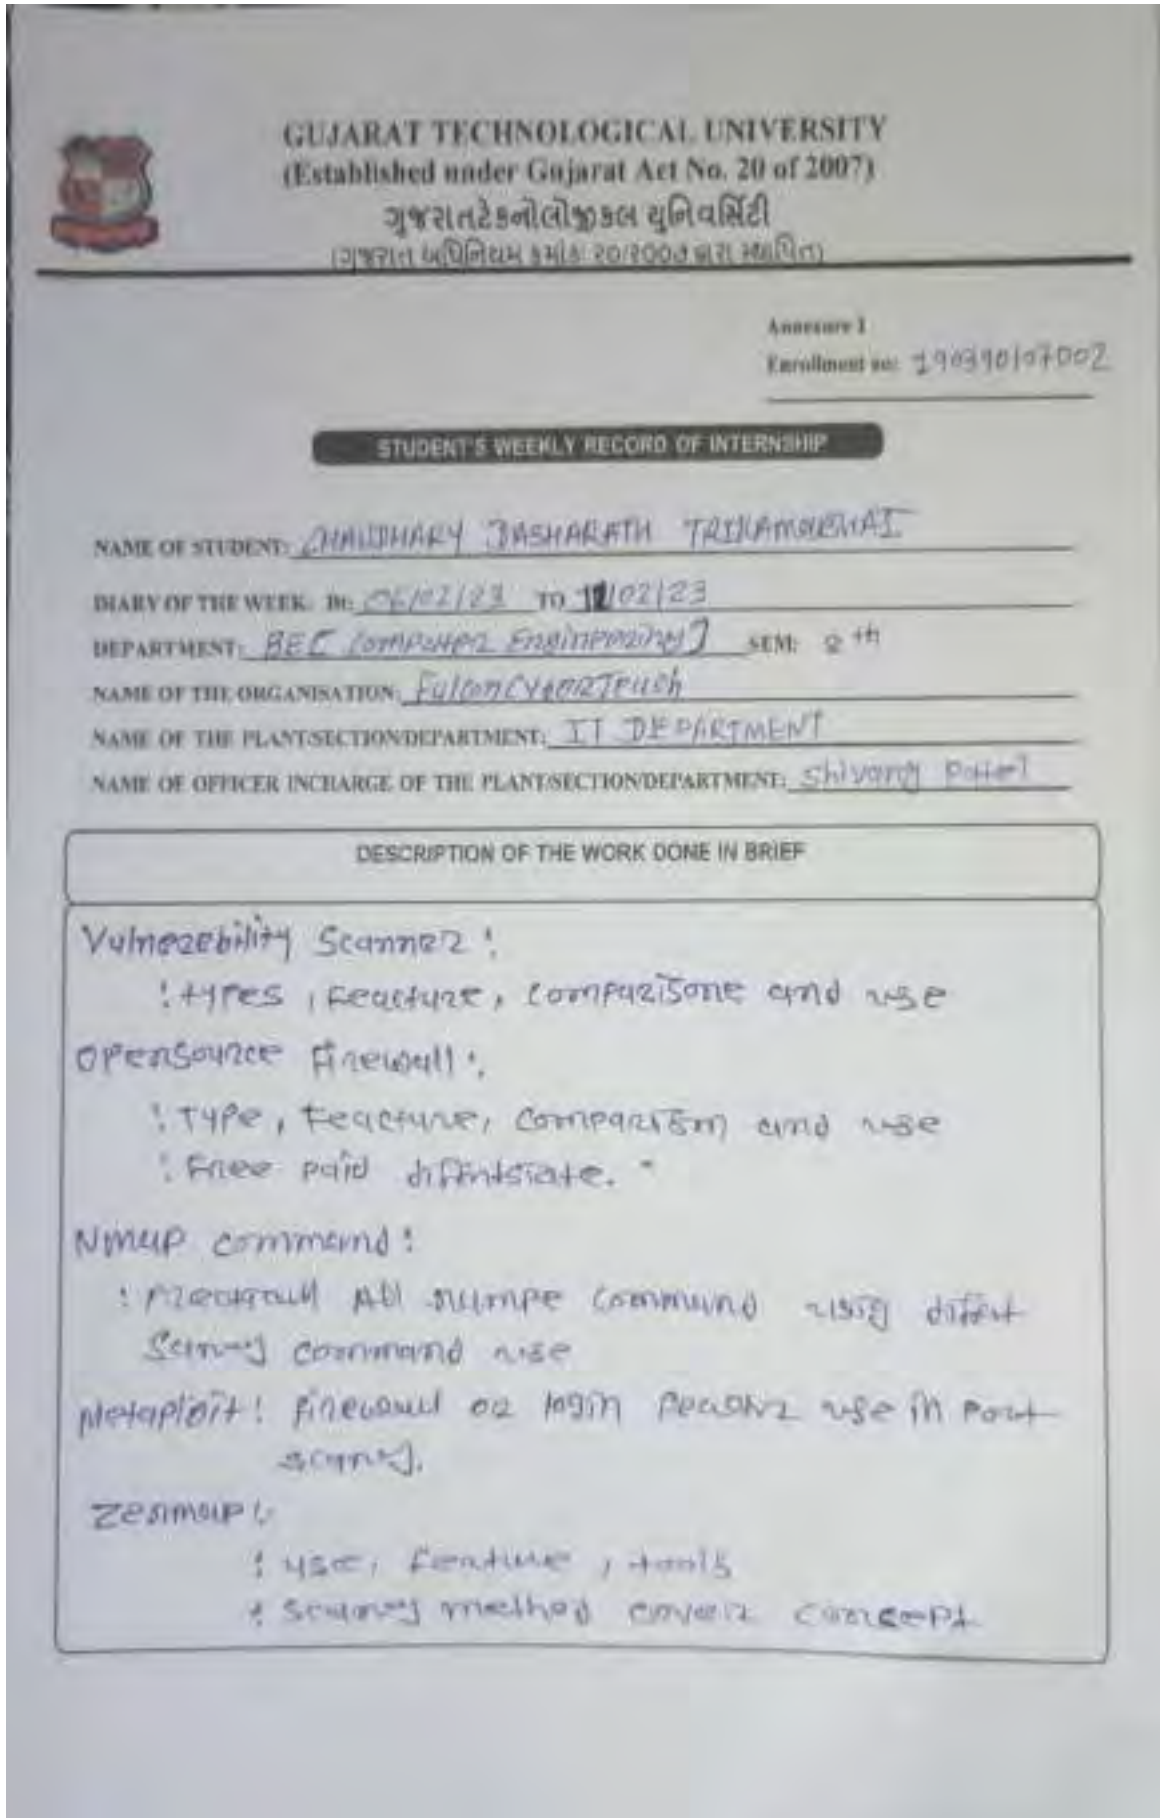 GUJARAT TECHNOLOGICAL UNIVERSITY
(Established under Gujarat Act No. 20 of 2007)
ગુજરાતટેકનોલોજીકલ યુનિવર્સિટી
(ગુજરાત અધિનિયમ ક્રમાંક: ૨૦/૨૦૦૭ દ્વારા સ્થાપિત)
Annexure I
Enrollment no: 190390107002
STUDENT'S WEEKLY RECORD OF INTERNSHIP
NAME OF STUDENT: CHAUDHARY DASHARATH
DIARY OF THE WEEK: Dt: 06/02/23 TO 11/02/23
DEPARTMENT: BE[Computer Engineering] SEM: 8th
NAME OF THE ORGANISATION:
NAME OF THE PLANT/SECTION/DEPARTMENT: IT DEPARTMENT
NAME OF OFFICER INCHARGE OF THE PLANT/SECTION/DEPARTMENT: Shivang Patel
DESCRIPTION OF THE WORK DONE IN BRIEF
Vulnerebility Scanner:
: types, Feacture, comparisone and use
opensource firewall:
: Type, Feacture, comparison and use
: Free paid
Nmap command:
: All command
command use
Metaploit: firewall or login use in Port
Zenmap:
: use, feature, tools
: method concept